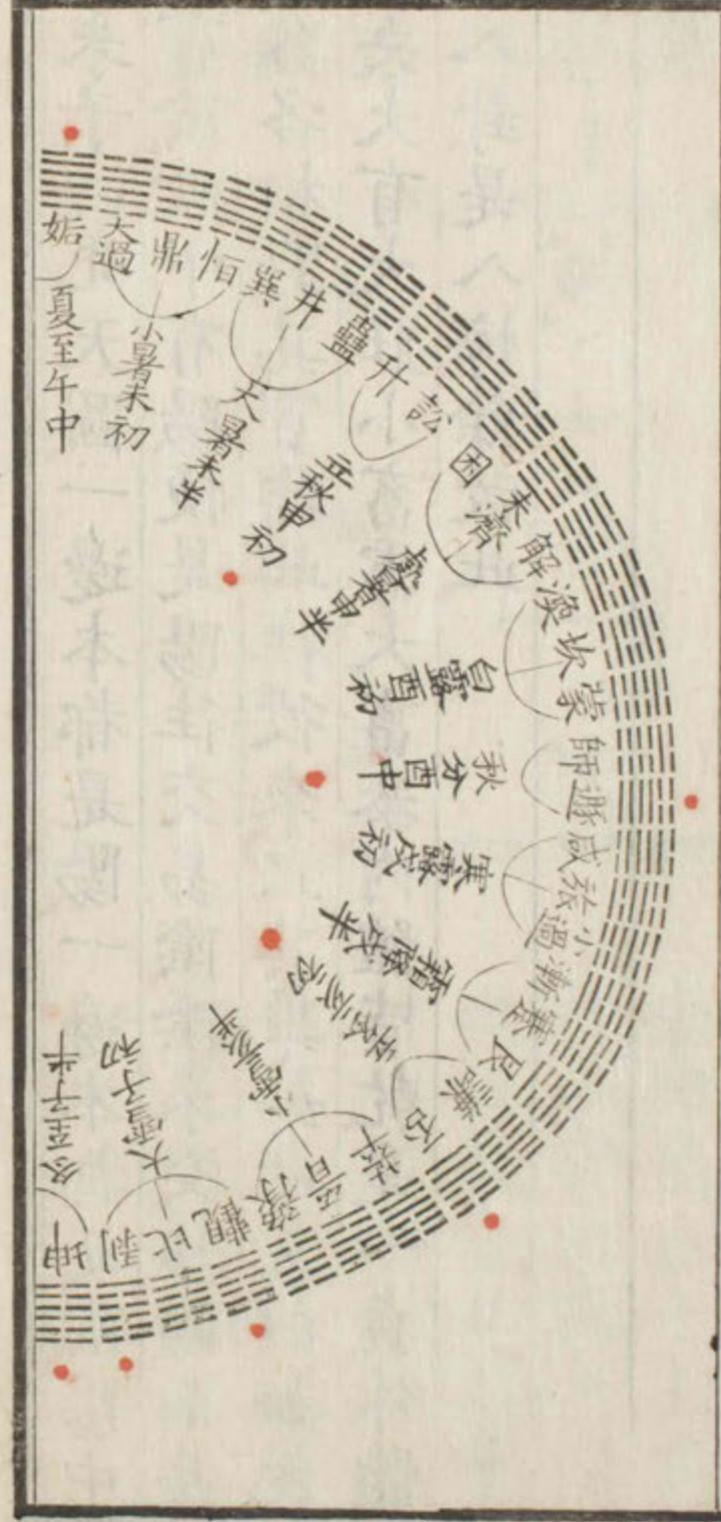 姤
大過
鼎
恒
巽
井
蠱
升
訟
困
未濟
解
渙
坎
蒙
師
遯
咸
旅
小過
漸
蹇
艮
謙
否
萃
晉
豫
觀
比
剝
坤
夏至午中
小暑未初
大暑未半
立秋申初
處暑申半
白露酉初
秋分酉中
寒露戌初
霜降戌半
立冬亥初
小雪亥半
大雪子初
冬至子半